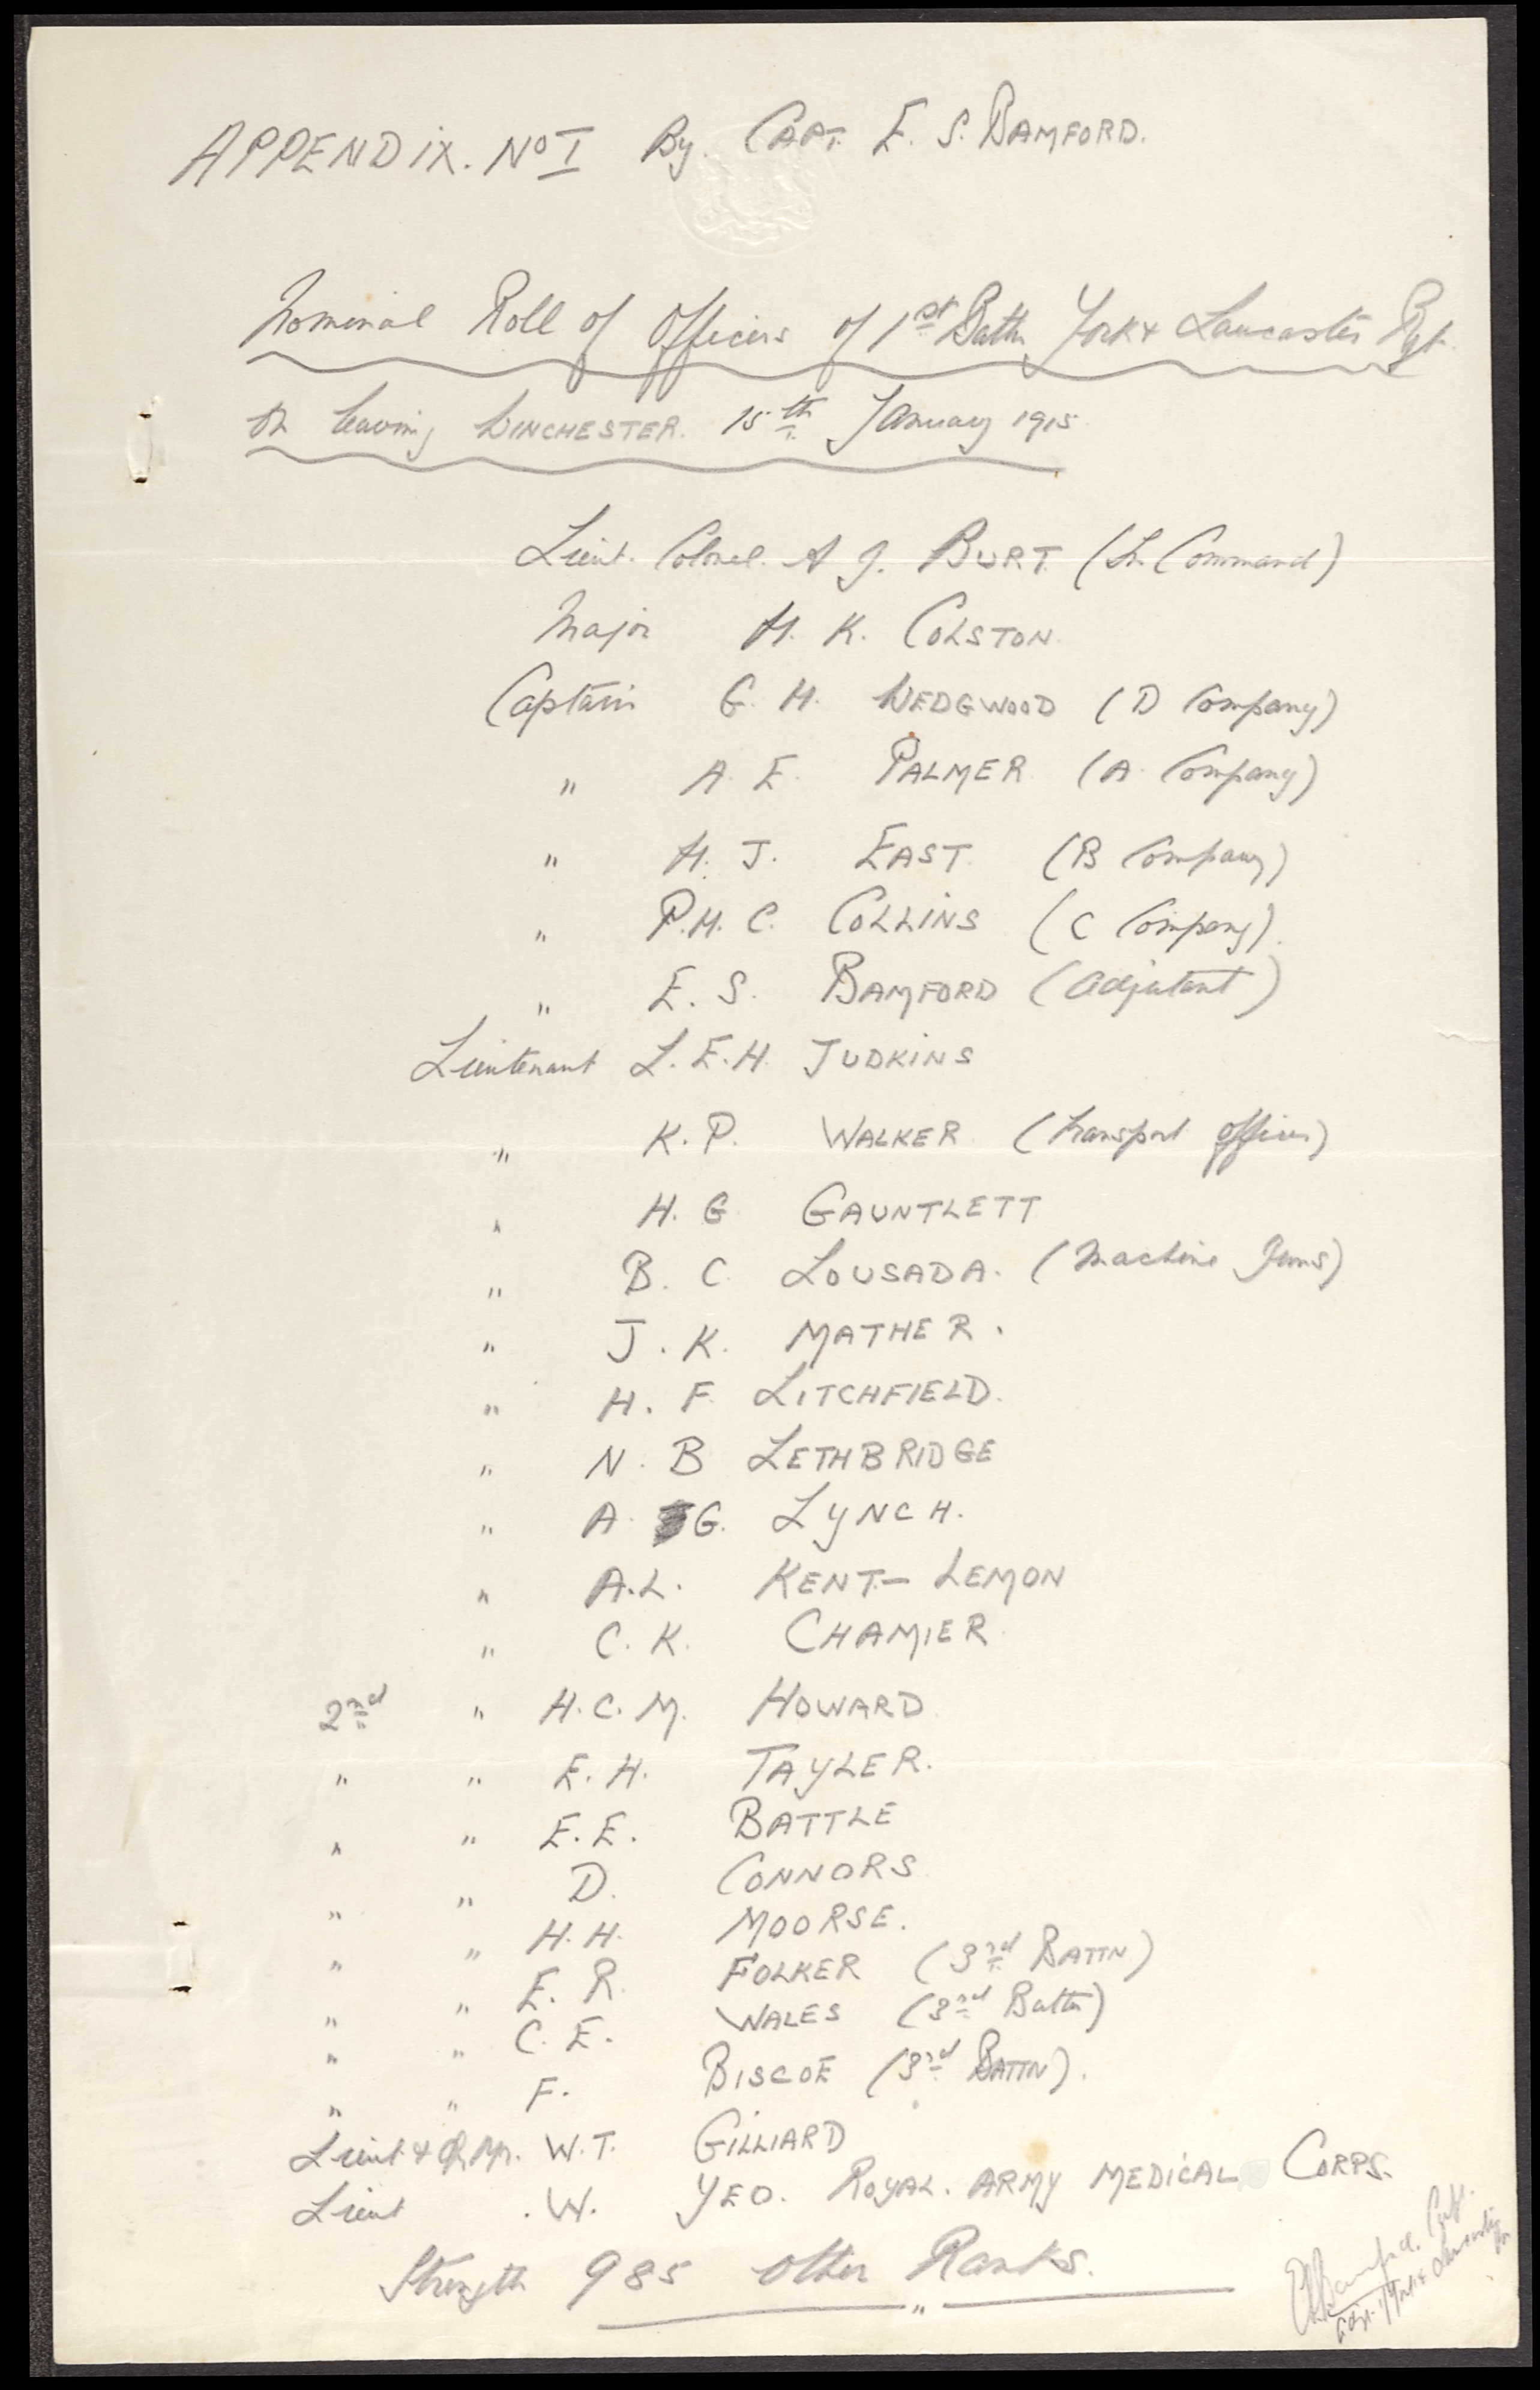 APPENDIX. No I By. CAPT. E. S. BAMFORD.
Nominal Roll of Officers of 1st Battn York & Lancaster Rgt.
on leaving WINCHESTER. 15th January 1915
Lieut. Colonel. A. G. BURT. (In Command)
Major H. K. COLSTON.
Captain G. H. WEDGWOOD (D Company)
" A. E. PALMER (A. Company)
" H. J. EAST. (B Company)
" P.H.C. COLLINS (C Company).
" E. S. BAMFORD (Adjutant)
Lieutenant L.E.H. JUDKINS
" K.P. WALKER (Transport Officer)
" H.G GAUNTLETT
" B.C. LOUSADA. (Machine Guns)
" J.K. MATHER.
" H.F. LITCHFIELD.
" N.B LETHBRIDGE
" A. G. LYNCH.
" A.L. KENT-LEMON
" C.K. CHAMIER.
2nd " H.C.M. HOWARD
" " E.H. TAYLER.
" " E.E. BATTLE
" " D. CONNORS
" " H.H. MOORSE.
" " E.R. FOLKER (3rd BATTN)
" " C.E. WALES (3rd Battn)
" " F. BISCOE (3rd BATTN).
Lieut. & Qr Mr. W.T. GILLIARD
Lieut. W. YEO. ROYAL. ARMY MEDICAL CORPS.
Strength 985 other Ranks.
"
ESBamford. Capt.
Adjt. 1/York & Lancaster